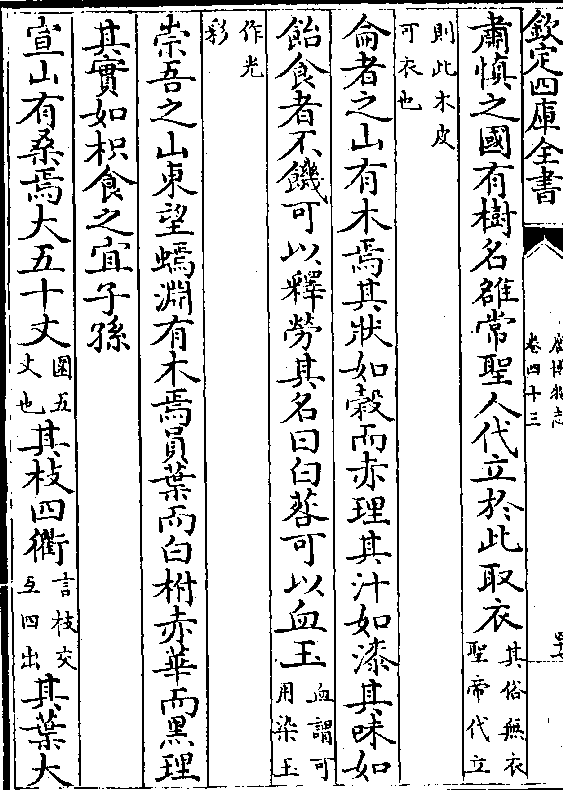 欽定四庫全書
廣博物志
卷四十三
肅慎之國有樹名雒常聖人代立於此取衣其俗無衣聖帝代立
則此木皮可衣也
侖者之山有木焉其狀如榖而赤理其汁如漆其味如
飴食者不饑可以釋勞其名曰白䓘可以血玉血謂可用染玉
作光彩
崇吾之山東望䗡淵有木焉員葉而白柎赤華而黑理
其實如枳食之宜子孫
宣山有桑焉大五十丈圍五丈也其枝四衢言枝交互四出其葉大